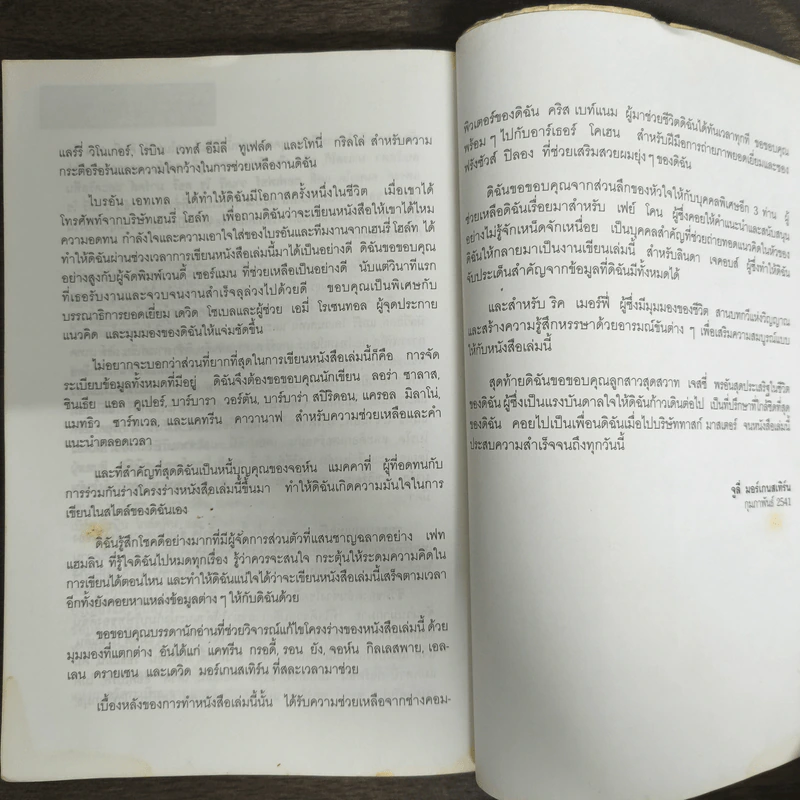 แลร์รี่ วิโนเกอร์, โรบิน เวทส์ อีมิลี่ ทูเฟล้ด และโทนี่ กริลโล่ สำหรับความ
กระตือรือร้นและความใจกว้างในการช่วยเหลืองานดิฉัน
ไบรอัน เอทเทล ได้ทำให้ดิฉันมีโอกาสครั้งหนึ่งในชีวิต เมื่อเขาได้
โทรศัพท์จากบริษัทเฮนรี่ โฮล์ท เพื่อถามดิฉันว่าจะเขียนหนังสือให้เขาได้ไหม
ความอดทน กำลังใจและความเอาใจใส่ของไบรอันและทีมงานจากเฮนรี่ โฮล์ท ได้
ทำให้ดิฉันผ่านช่วงเวลาการเขียนหนังสือเล่มนี้มาได้เป็นอย่างดี ดิฉันขอขอบคุณ
อย่างสูงกับผู้จัดพิมพ์เวนดี้ เชอร์แมน ที่ช่วยเหลือเป็นอย่างดี นับแต่วินาทีแรก
ที่เธอรับงานและจวบจนงานสำเร็จลุล่วงไปด้วยดี ขอบคุณเป็นพิเศษกับ
บรรณาธิการยอดเยี่ยม เดวิด โซเบลและผู้ช่วย เอมี่ โรเซนทอล ผู้จุดประกาย
แนวคิด และมุมมองของดิฉันให้แจ่มชัดขึ้น
ไม่อยากจะบอกว่าส่วนที่ยากที่สุดในการเขียนหนังสือเล่มนี้ก็คือ การจัด
ระเบียบข้อมูลทั้งหมดที่มีอยู่ ดิฉันจึงต้องขอขอบคุณนักเขียน ลอร่า ซาลาส,
ซินเธีย แอล คูเปอร์, บาร์บารา วอร์ดัน, บาร์บาร่า สปิริดอน, แครอล มิลาโน่,
แมทธิว ซาร์ทเวล, และแคทรีน คาวานาฟ สำหรับความช่วยเหลือและคำ
แนะนำตลอดเวลา
และที่สำคัญที่สุดดิฉันเป็นหนี้บุญคุณของจอห์น แมคคาที่ ผู้ที่อดทนกับ
การร่วมกันร่างโครงร่างหนังสือเล่มนี้ขึ้นมา ทำให้ดิฉันเกิดความมั่นใจในการ
เขียนในสไตล์ของดิฉันเอง
ดิฉันรู้สึกโชคดีอย่างมากที่มีผู้จัดการส่วนตัวที่แสนชาญฉลาดอย่าง เฟท
แฮมลิน ที่รู้ใจดิฉันไปหมดทุกเรื่อง รู้ว่าควรจะสนใจ กระตุ้นให้ระดมความคิดใน
การเขียนได้ตอนไหน และทำให้ดิฉันแน่ใจได้ว่าจะเขียนหนังสือเล่มนี้เสร็จตามเวลา
อีกทั้งยังคอยหาแหล่งข้อมูลต่าง ๆ ให้กับดิฉันด้วย
ขอขอบคุณบรรดานักอ่านที่ช่วยวิจารณ์แก้ไขโครงร่างของหนังสือเล่มนี้ ด้วย
มุมมองที่แตกต่าง อันได้แก่ แคทรีน กรอดี้, รอน ยัง, จอห์น กิลเลสพาย, เอล-
เลน ดรายเซน และเดวิด มอร์เกนสเทิร์น ที่สละเวลามาช่วย
เบื้องหลังของการทำหนังสือเล่มนี้นั้น ได้รับความช่วยเหลือจากช่างคอม-
พิวเตอร์ของดิฉัน คริส เบท์แนม ผู้มาช่วยชีวิตดิฉันได้ทันเวลาทุกที ขอขอบคุณ
พร้อม ๆ ไปกับอาร์เธอร์ โคเฮน สำหรับฝีมือการถ่ายภาพยอดเยี่ยมและของ
ฟรังซัวส์ ปิลอง ที่ช่วยเสริมสวยผมยุ่ง ๆ ของดิฉัน
ดิฉันขอขอบคุณจากส่วนลึกของหัวใจให้กับบุคคลพิเศษอีก 3 ท่าน ผู้
ช่วยเหลือดิฉันเรื่อยมาสำหรับ เฟย์ โดน ผู้ซึ่งคอยให้คำแนะนำและสนับสนุน
อย่างไม่รู้จักเหน็ดจักเหนื่อย เป็นบุคคลสำคัญที่ช่วยถ่ายทอดแนวคิดในหัวของ
ดิฉันให้กลายมาเป็นงานเขียนเล่มนี้ สำหรับลินดา เจคอบส์ ผู้ซึ่งทำให้ดิฉัน
จับประเด็นสำคัญจากข้อมูลที่ดิฉันมีทั้งหมดได้
และสำหรับ ริค เมอร์ฟี่ ผู้ซึ่งมีมุมมองของชีวิต สานบทกวีแห่งวิญญาณ
และสร้างความรู้สึกหรรษาด้วยอารมณ์ขันต่าง ๆ เพื่อเสริมความสมบูรณ์แบบ
ให้กับหนังสือเล่มนี้
สุดท้ายดิฉันขอขอบคุณลูกสาวสุดสวาท เจสซี่ พรอันสุดประเสริฐในชีวิต
ของดิฉัน ผู้ซึ่งเป็นแรงบันดาลใจให้ดิฉันก้าวเดินต่อไป เป็นที่ปรึกษาที่ใกล้ชิดที่สุด
ของดิฉัน คอยไปเป็นเพื่อนดิฉันเมื่อไปบริษัททาสก์ มาสเตอร์ จนหนังสือเล่มนี้
ประสบความสำเร็จจนถึงทุกวันนี้
จูลี่ มอร์เกนสเทิร์น
กุมภาพันธ์ 2541